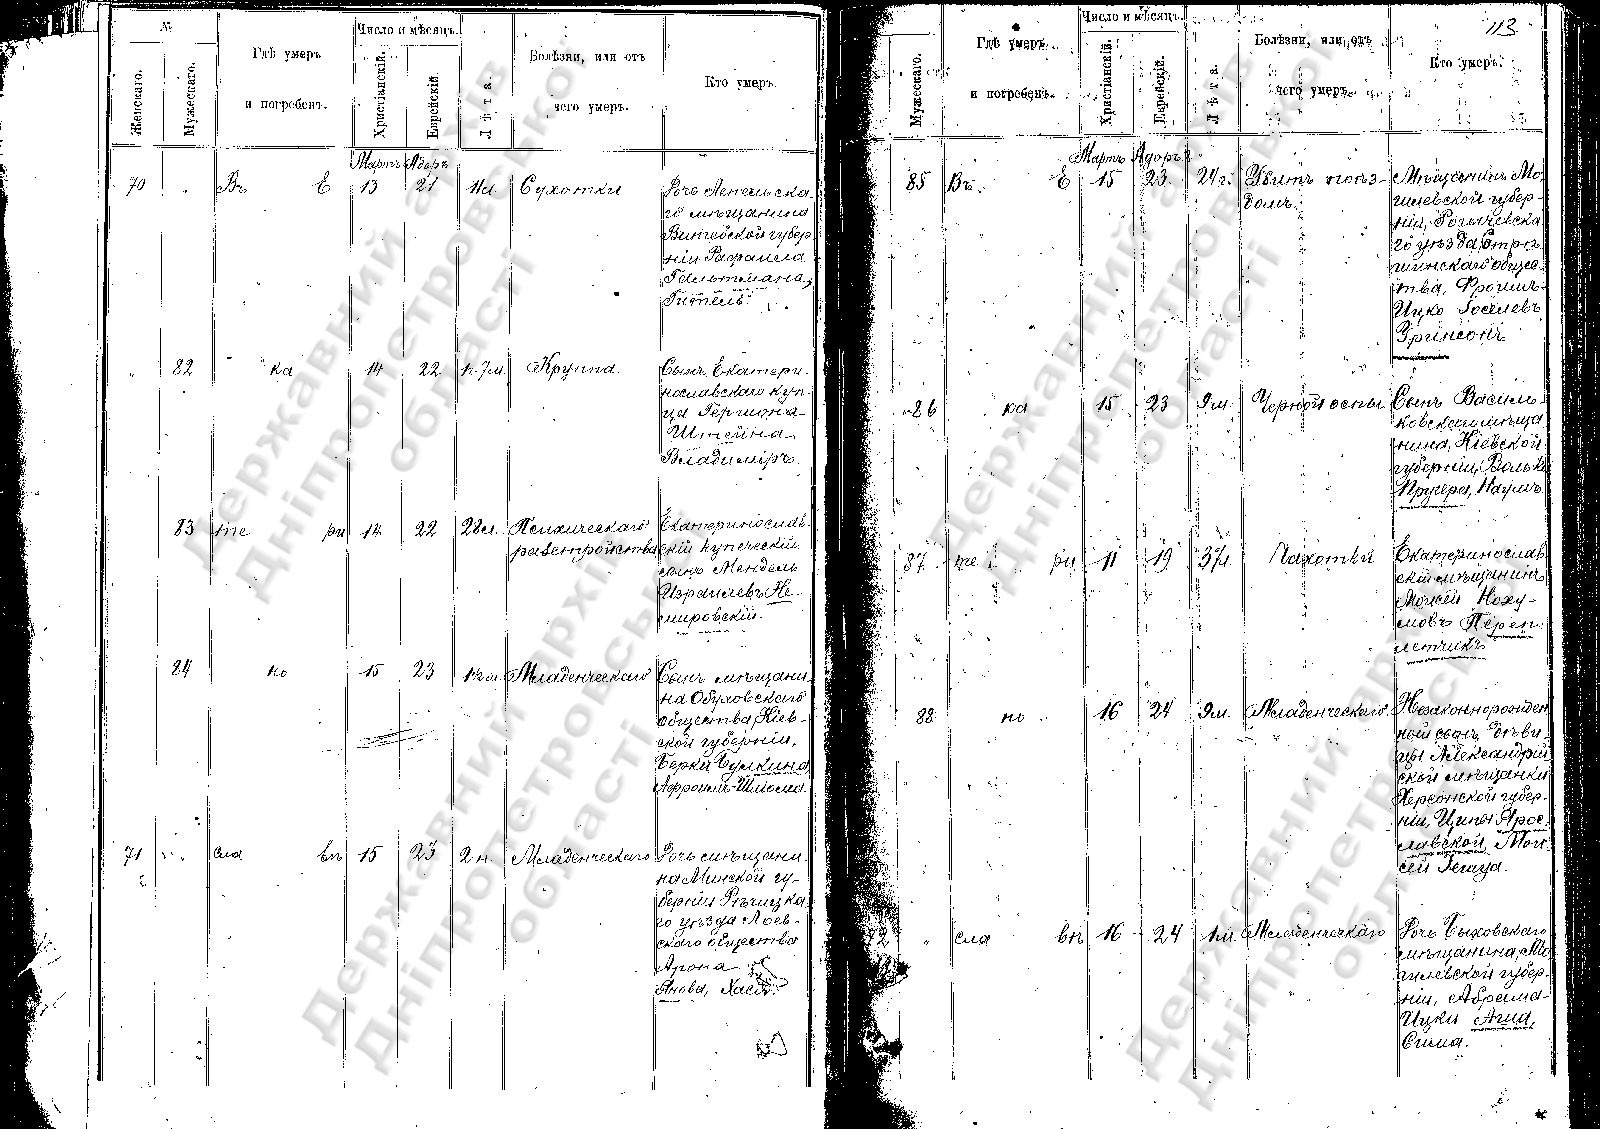 №
Женскаго.
Мужескаго.
Гдѣ умеръ
и погребенъ.
Число и мѣсяцъ.
Христіанскій.
Еврейскій
Лѣта.
Болѣзни, или отъ
чего умеръ.
Кто умеръ.
Мартъ Адоръ
70 Въ Е 13 21 Сухотки
Дочь Лепельска-
го мѣщанина
Витебской губер
ніи Рафаила
Гельтмана,
Гитель
82 ка 14 22 Круппа
Сынъ Екатери-
нославскаго куп-
ца Гершона
Штейна
Владиміръ
83 те ри 14 22 Психическаго
разстройства
Екатеринослав-
скій купеческій
сынъ Мендель
Израилевъ Не-
мировскій.
84 но 15 23 Младенческаго
Сынъ мѣщани-
на Обуховскаго
общества, Кіев-
ской губерніи,
Берки Булкина,
Афроимъ-Шлиома.
71 сла въ 15 23 2 н. Младенческаго
Дочь мѣщани-
на Минской гу-
берніи Рѣчицка-
го уѣзда Лоев-
скаго общества
Арона
Анова, Хася.
113
Мужескаго.
Гдѣ умеръ
и погребенъ.
Число и мѣсяцъ.
Христіанскій.
Еврейскій.
Лѣта.
Болѣзни, или отъ
чего умеръ.
Кто умеръ.
Мартъ Адоръ
85 Въ Е 15 23 24 г. Убитъ поѣз-
домъ.
Мѣщанинъ Мо-
гилевской губер-
ніи, Рогачевска
го уѣзда, Стрѣ-
шинскаго общес-
тва, Фроимъ-
Ицко Іоселевъ
Гринсонъ
86 ка 15 23 9 м. Черной оспы
Сынъ Василь-
ковскаго мѣща
нина, Кіевской
губерніи, Вольки
Пругера, Наумъ.
87 те ри 11 19 37 л. Чахотки
Екатеринослав
скій мѣщанинъ
Моисей Ноху-
мовъ Переп-
летчикъ
88 но 16 24 9 м. Младенческаго
Незаконнорожден
ный сынъ дѣви-
цы Александрій
ской мѣщанки
Херсонской губер-
ніи, Ципы Ярос-
лавской, Мои-
сей Гешуа.
72 сла въ 16 24 1 м. Младенческаго
Дочь Быховскаго
мѣщанина, Мо
гилевской губер-
ніи, Абрама-
Ицки Агид,
Сима.
Державний архів
Дніпропетровської
області